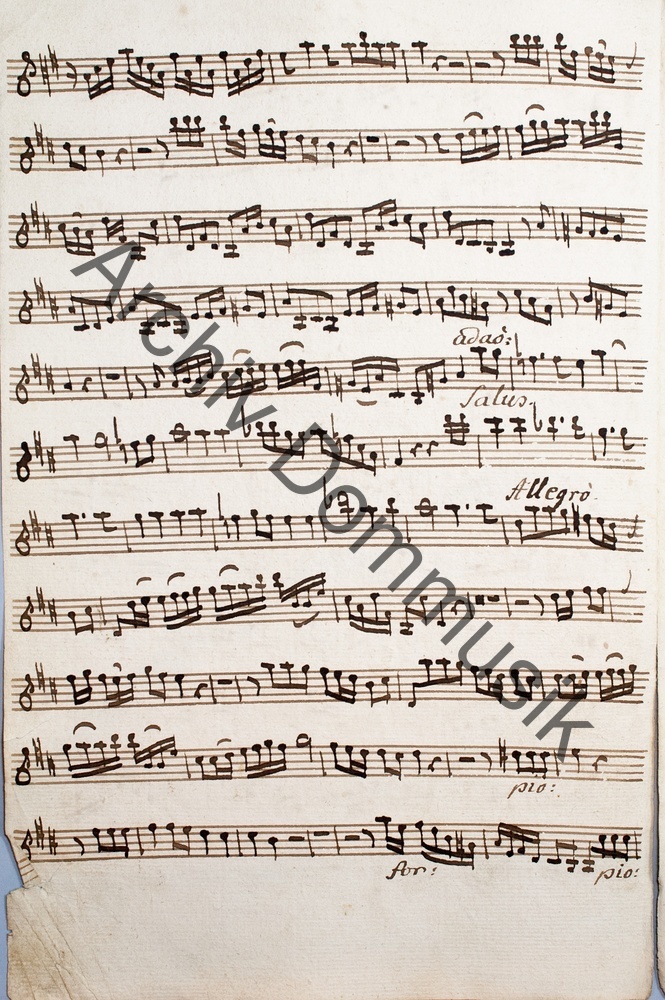 adaò:
Salus.
Allegrò.
pio:
for:
pio:
Archiv Dommusik